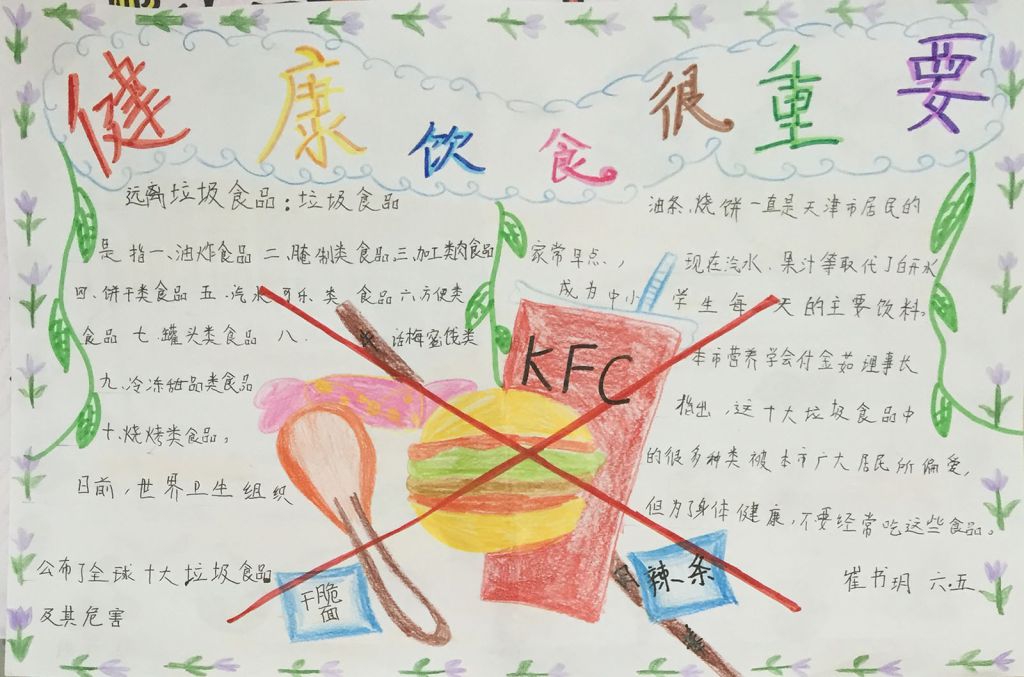 健康饮食很重要
远离垃圾食品：垃圾食品
是指一、油炸食品 二、腌制类食品、三、加工类肉食品
四、饼干类食品 五、汽水可乐类食品 六、方便类
食品 七、罐头类食品 八、
话梅蜜饯类
九、冷冻甜品类食品
十、烧烤类食品。
目前，世界卫生组织
公布了全球十大垃圾食品
及其危害
油条、烧饼一直是天津市居民的
家常早点，
现在汽水、果汁等取代了白开水
成为中小学生每天的主要饮料。
本市营养学会付金茹理事长
指出，这十大垃圾食品中
的很多种类被本市广大居民所偏爱，
但为了身体健康，不要经常吃这些食品。
崔书玥 六.五
KFC
干脆面
辣条